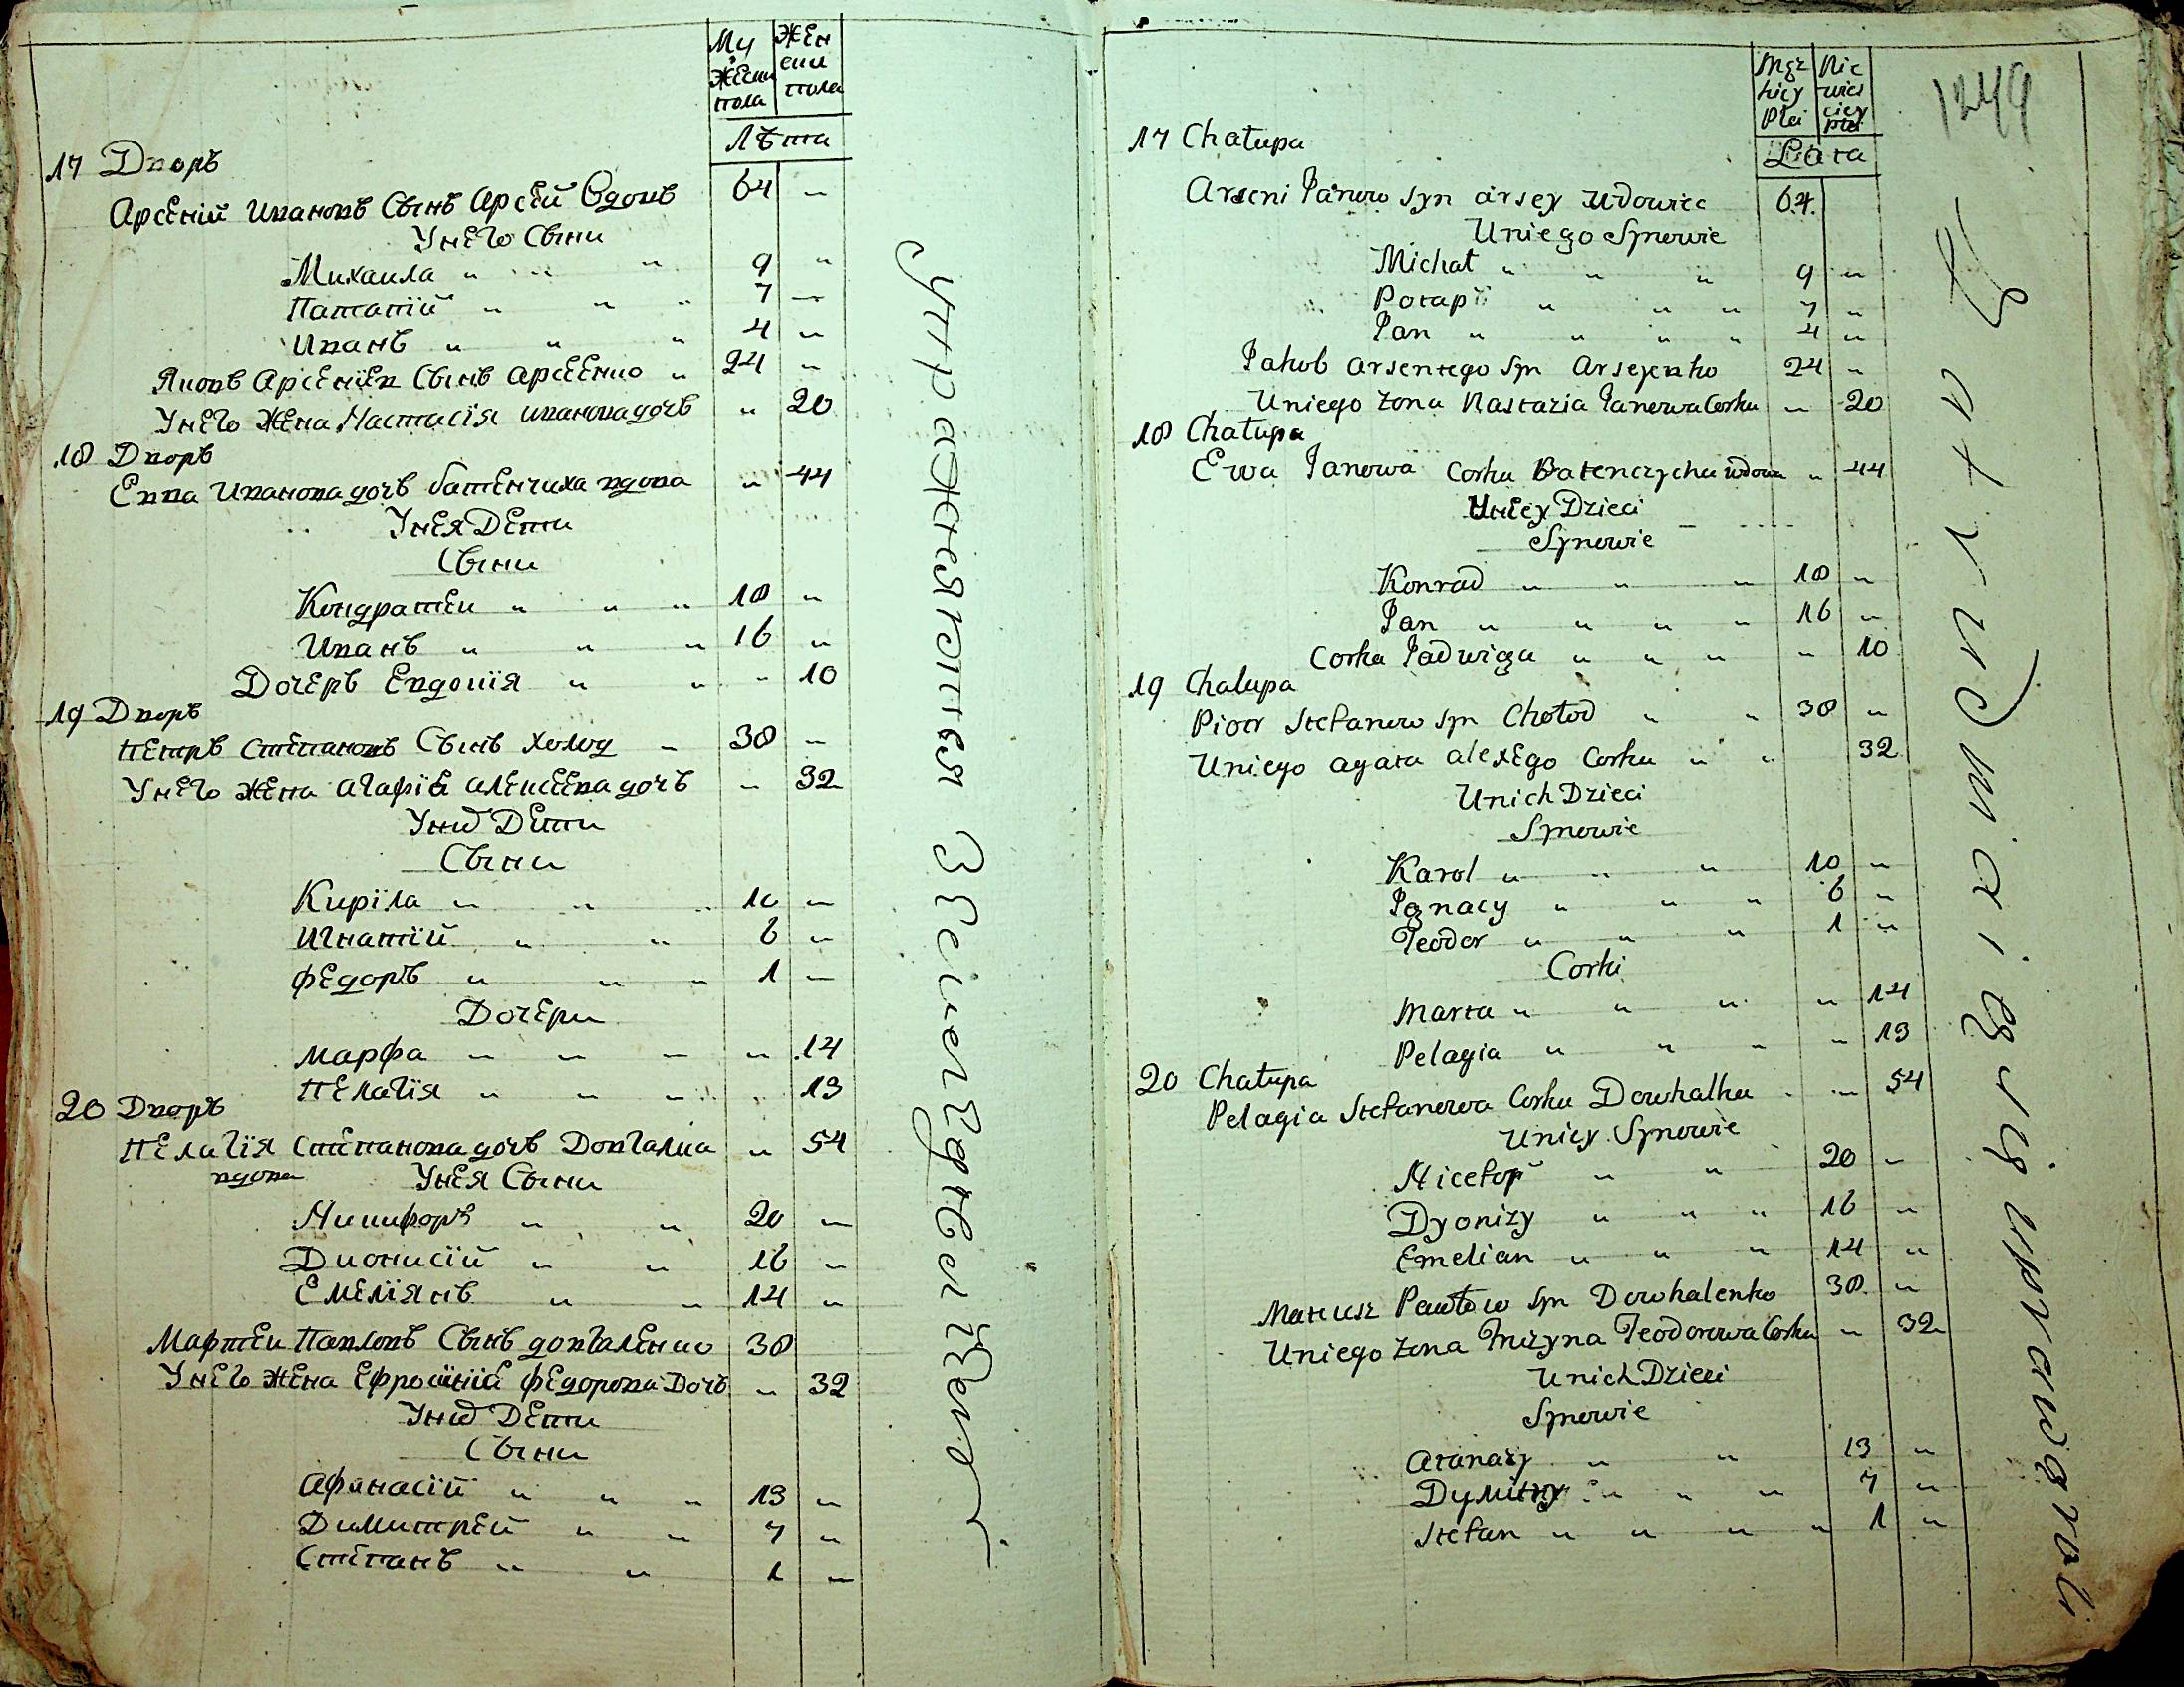 Мужески пола
Женски пола
Лѣта
17 Дворъ
Арсеній Ивановъ Сынъ Арсѣй Вдовъ 64 „
Унего Сыни
Михаила „ „ „ 9 „
Патапій „ „ „ 7 „
Иванъ „ „ „ 4 „
Яковъ Арсеніев Сынъ Арсеенко „ 24 „
Унего Жена Настасія Иванова дочъ „ 20
18 Дворъ
Евва Иванова дочъ батенчиха вдова „ 44
Унея Дети
Сыни
Кондратеи „ „ „ 18 „
Иванъ „ „ „ 16 „
Дочеръ Евдокія „ „ „ 10
19 Дворъ
Петръ Степановъ Сынъ Холод „ 38 „
Унего жена Агафія Алексеева дочъ „ 32
Уних Дети
Сыни
Киріла „ „ „ 10 „
Игнатій „ „ 6 „
Федоръ „ „ „ 1 „
Дочери
Марфа „ „ „ „ 14
Пелагія „ „ „ „ 13
20 Дворъ
Пелагія Степанова дочъ Довгалка „ 54
вдова Унея Сыни
Никифоръ „ „ 20 „
Дионисій „ „ 16 „
Емеліянъ „ „ 14 „
Мартеи Павловъ Сынъ довгаленко 38
Унего жена Ефросинія Федорова Дочъ „ 32
Уних Дети
Сыни
Афанасій „ „ „ 13 „
Димитрей „ „ 7 „
Степанъ „ „ 1 „
1249
Męzkiey Płci
Niewieściey płci
Lata
17 Chałupa
Arseni Janow syn arsey wdowiec 64
Uniego Synowie
Michał „ „ „ 9 „
Potapij „ „ „ 7 „
Jan „ „ „ „ 4 „
Jakob Arseniego syn Arsejenko 24 „
Uniego żona Nastazia Janowa Corka „ 20
18 Chałupa
Ewa Janowa Corka Batenczycha wdowa „ 44
Uniey Dzieci
Synowie
Konrad „ „ „ 18 „
Jan „ „ „ „ 16 „
Corka Jadwiga „ „ „ „ 10
19 Chałupa
Piotr Stefanow syn Chołod „ „ 38 „
Uniego agata alexego Corka „ „ 32
Unich Dzieci
Synowie
Karol „ „ „ 10 „
Ignacy „ „ „ 6 „
Teodor „ „ „ 1 „
Corki
Marta „ „ „ „ 14
Pelagia „ „ „ „ 13
20 Chałupa
Pelagia Stefanowa Corka Dowhalka „ 54
Uniey Synowie
Nicefor „ „ 20 „
Dyonizy „ „ „ 16 „
Emelian „ „ „ 14 „
Mateusz Pawłow syn Dowhalenko 38 „
Uniego żona Teodorowa Corka „ 32
Unich Dzieci
Synowie
Atanazy „ „ 13 „
Dymitry „ „ „ 7 „
Stefan „ „ „ „ 1 „